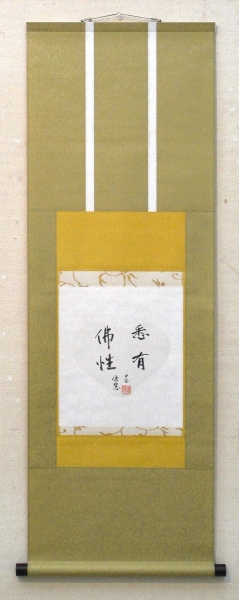 悉有
佛性